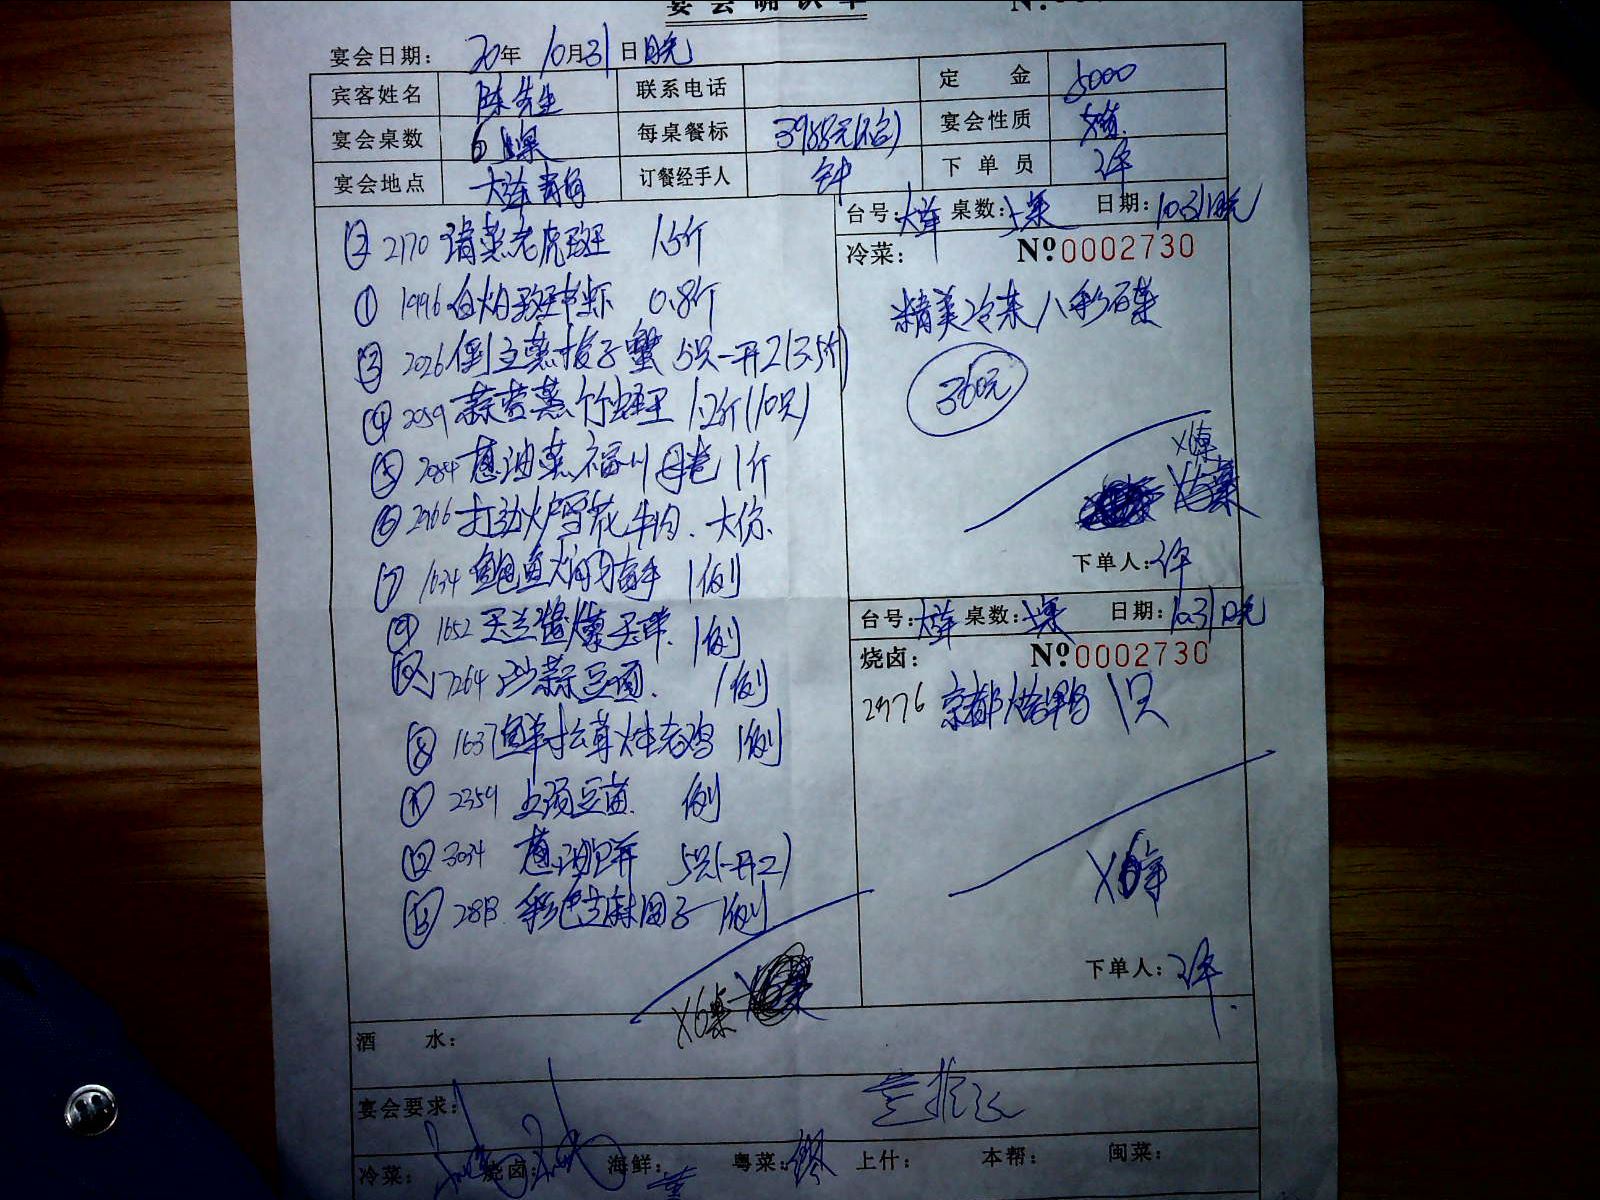 宴会确认单
宴会日期： 20年 10月31日晚
宾客姓名 陈先生 联系电话 定 金 5000
宴会桌数 6桌 每桌餐标 3988元 宴会性质
宴会地点 订餐经手人 钟 下单员
② 2170 清蒸老虎斑 1.5斤
① 1996 白灼斑节虾 0.8斤
③ 2026 倒立蒸梭子蟹 5只一开2(3.5斤)
④ 2059 蒜茸蒸竹蛏王 1.2斤(10只)
⑤ 2084 葱油蒸 1斤
⑥ 2966 火雪花牛肉 大份
⑦ 1634 鲍鱼焖 1例
⑨ 1652 1例
⑩ 17264 沙蒜豆面 1例
⑧ 1637 松茸炖老鸡 1例
⑪ 2359 上汤豆苗 例
⑫ 3034 葱油饼 5只(一开2)
⑬ 彩色芝麻团子 1例
X6桌
台号： 桌数： 日期：10.31晚
冷菜： Nº0002730
精美冷菜八彩百菜
360元
X6桌
下单人：
台号： 桌数： 日期：10.31晚
烧卤： Nº0002730
2976 京都烤鸭 1只
X6
下单人：
酒 水：
宴会要求：
冷菜： 烧卤： 海鲜： 粤菜： 上什： 本帮： 闽菜：